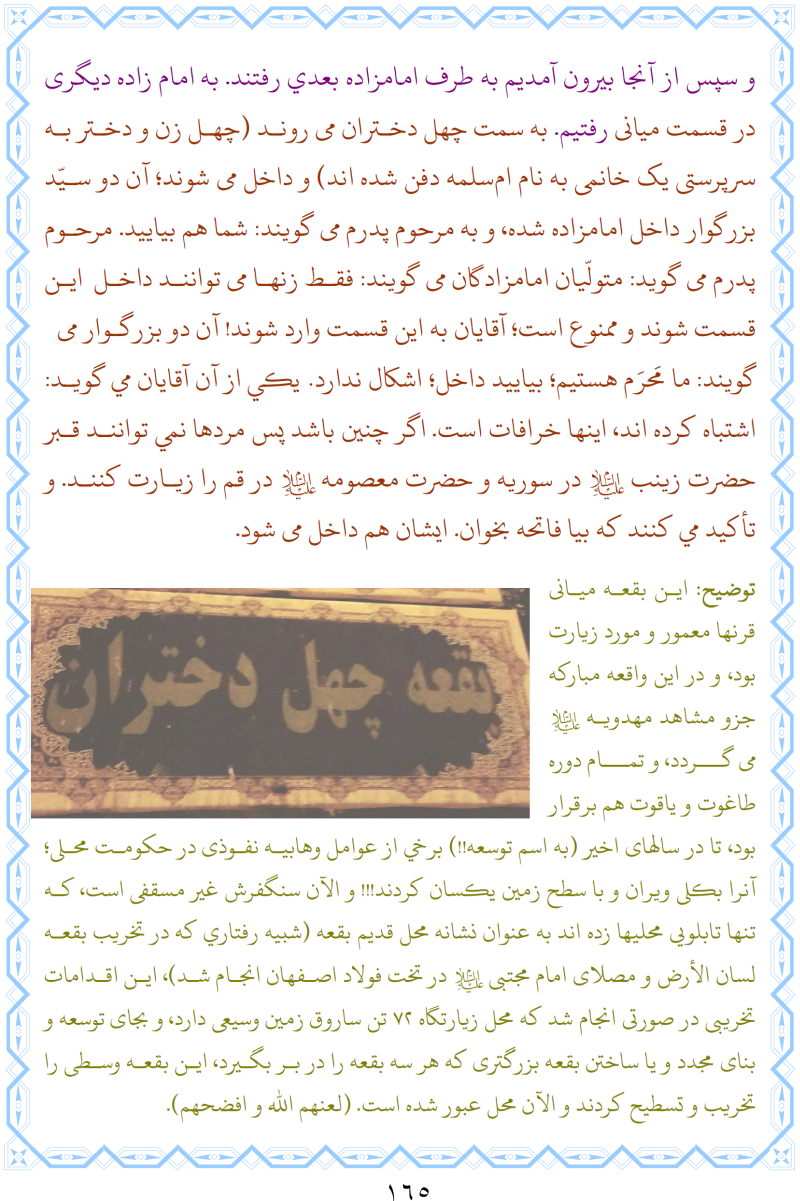 و سپس از آنجا بیرون آمدیم به طرف امامزاده بعدي رفتند. به امام زاده دیگری
در قسمت میانی رفتیم. به سمت چهل دختران می روند (چهل زن و دختر به
سرپرستی یک خانمی به نام ام‌سلمه دفن شده اند) و داخل می شوند؛ آن دو سیّد
بزرگوار داخل امامزاده شده، و به مرحوم پدرم می گویند: شما هم بیایید. مرحوم
پدرم می گوید: متولّیان امامزادگان می گویند: فقط زنها می توانند داخل این
قسمت شوند و ممنوع است؛ آقایان به این قسمت وارد شوند! آن دو بزرگوار می
گویند: ما مَحرَم هستیم؛ بیایید داخل؛ اشکال ندارد. یکي از آن آقایان مي گوید:
اشتباه کرده اند، اینها خرافات است. اگر چنین باشد پس مردها نمي توانند قبر
حضرت زینب علیها السلام در سوریه و حضرت معصومه علیها السلام در قم را زیارت کنند. و
تأکید مي کنند که بیا فاتحه بخوان. ایشان هم داخل می شود.
توضیح: این بقعه میانی
قرنها معمور و مورد زیارت
بود، و در این واقعه مبارکه
جزو مشاهد مهدویه علیه السلام
می گردد، و تمام دوره
طاغوت و یاقوت هم برقرار
بقعه چهل دختران
بود، تا در سالهای اخیر (به اسم توسعه!!) برخي از عوامل وهابیه نفوذی در حکومت محلی؛
آنرا بکلی ویران و با سطح زمین یکسان کردند!!! و الآن سنگفرش غیر مسقفی است، که
تنها تابلویی محلیها زده اند به عنوان نشانه محل قدیم بقعه (شبیه رفتاري که در تخریب بقعه
لسان الأرض و مصلای امام مجتبی علیه السلام در تخت فولاد اصفهان انجام شد)، این اقدامات
تخریبی در صورتی انجام شد که محل زیارتگاه ۷۲ تن ساروق زمین وسیعی دارد، و بجای توسعه و
بنای مجدد و یا ساختن بقعه بزرگتری که هر سه بقعه را در بر بگیرد، این بقعه وسطی را
تخریب و تسطیح کردند و الآن محل عبور شده است. (لعنهم الله و افضحهم).
١٦٥